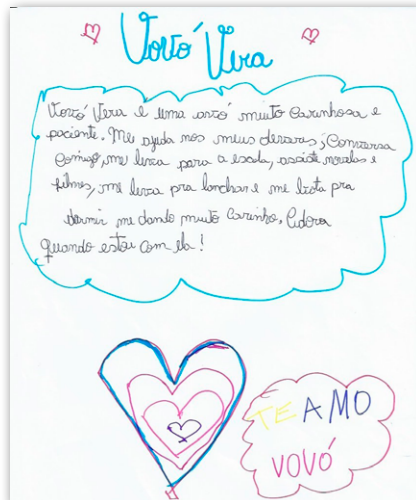 Vovó Vera
Vovó Vera é uma avó muito carinhosa e
paciente. Me ajuda nos meus deveres, conversa
comigo, me leva para a escola, assiste novelas e
filmes, me leva pra lanchar e me bota pra
dormir me dando muito carinho. Adoro
quando estou com ela!
TE AMO
VOVÓ